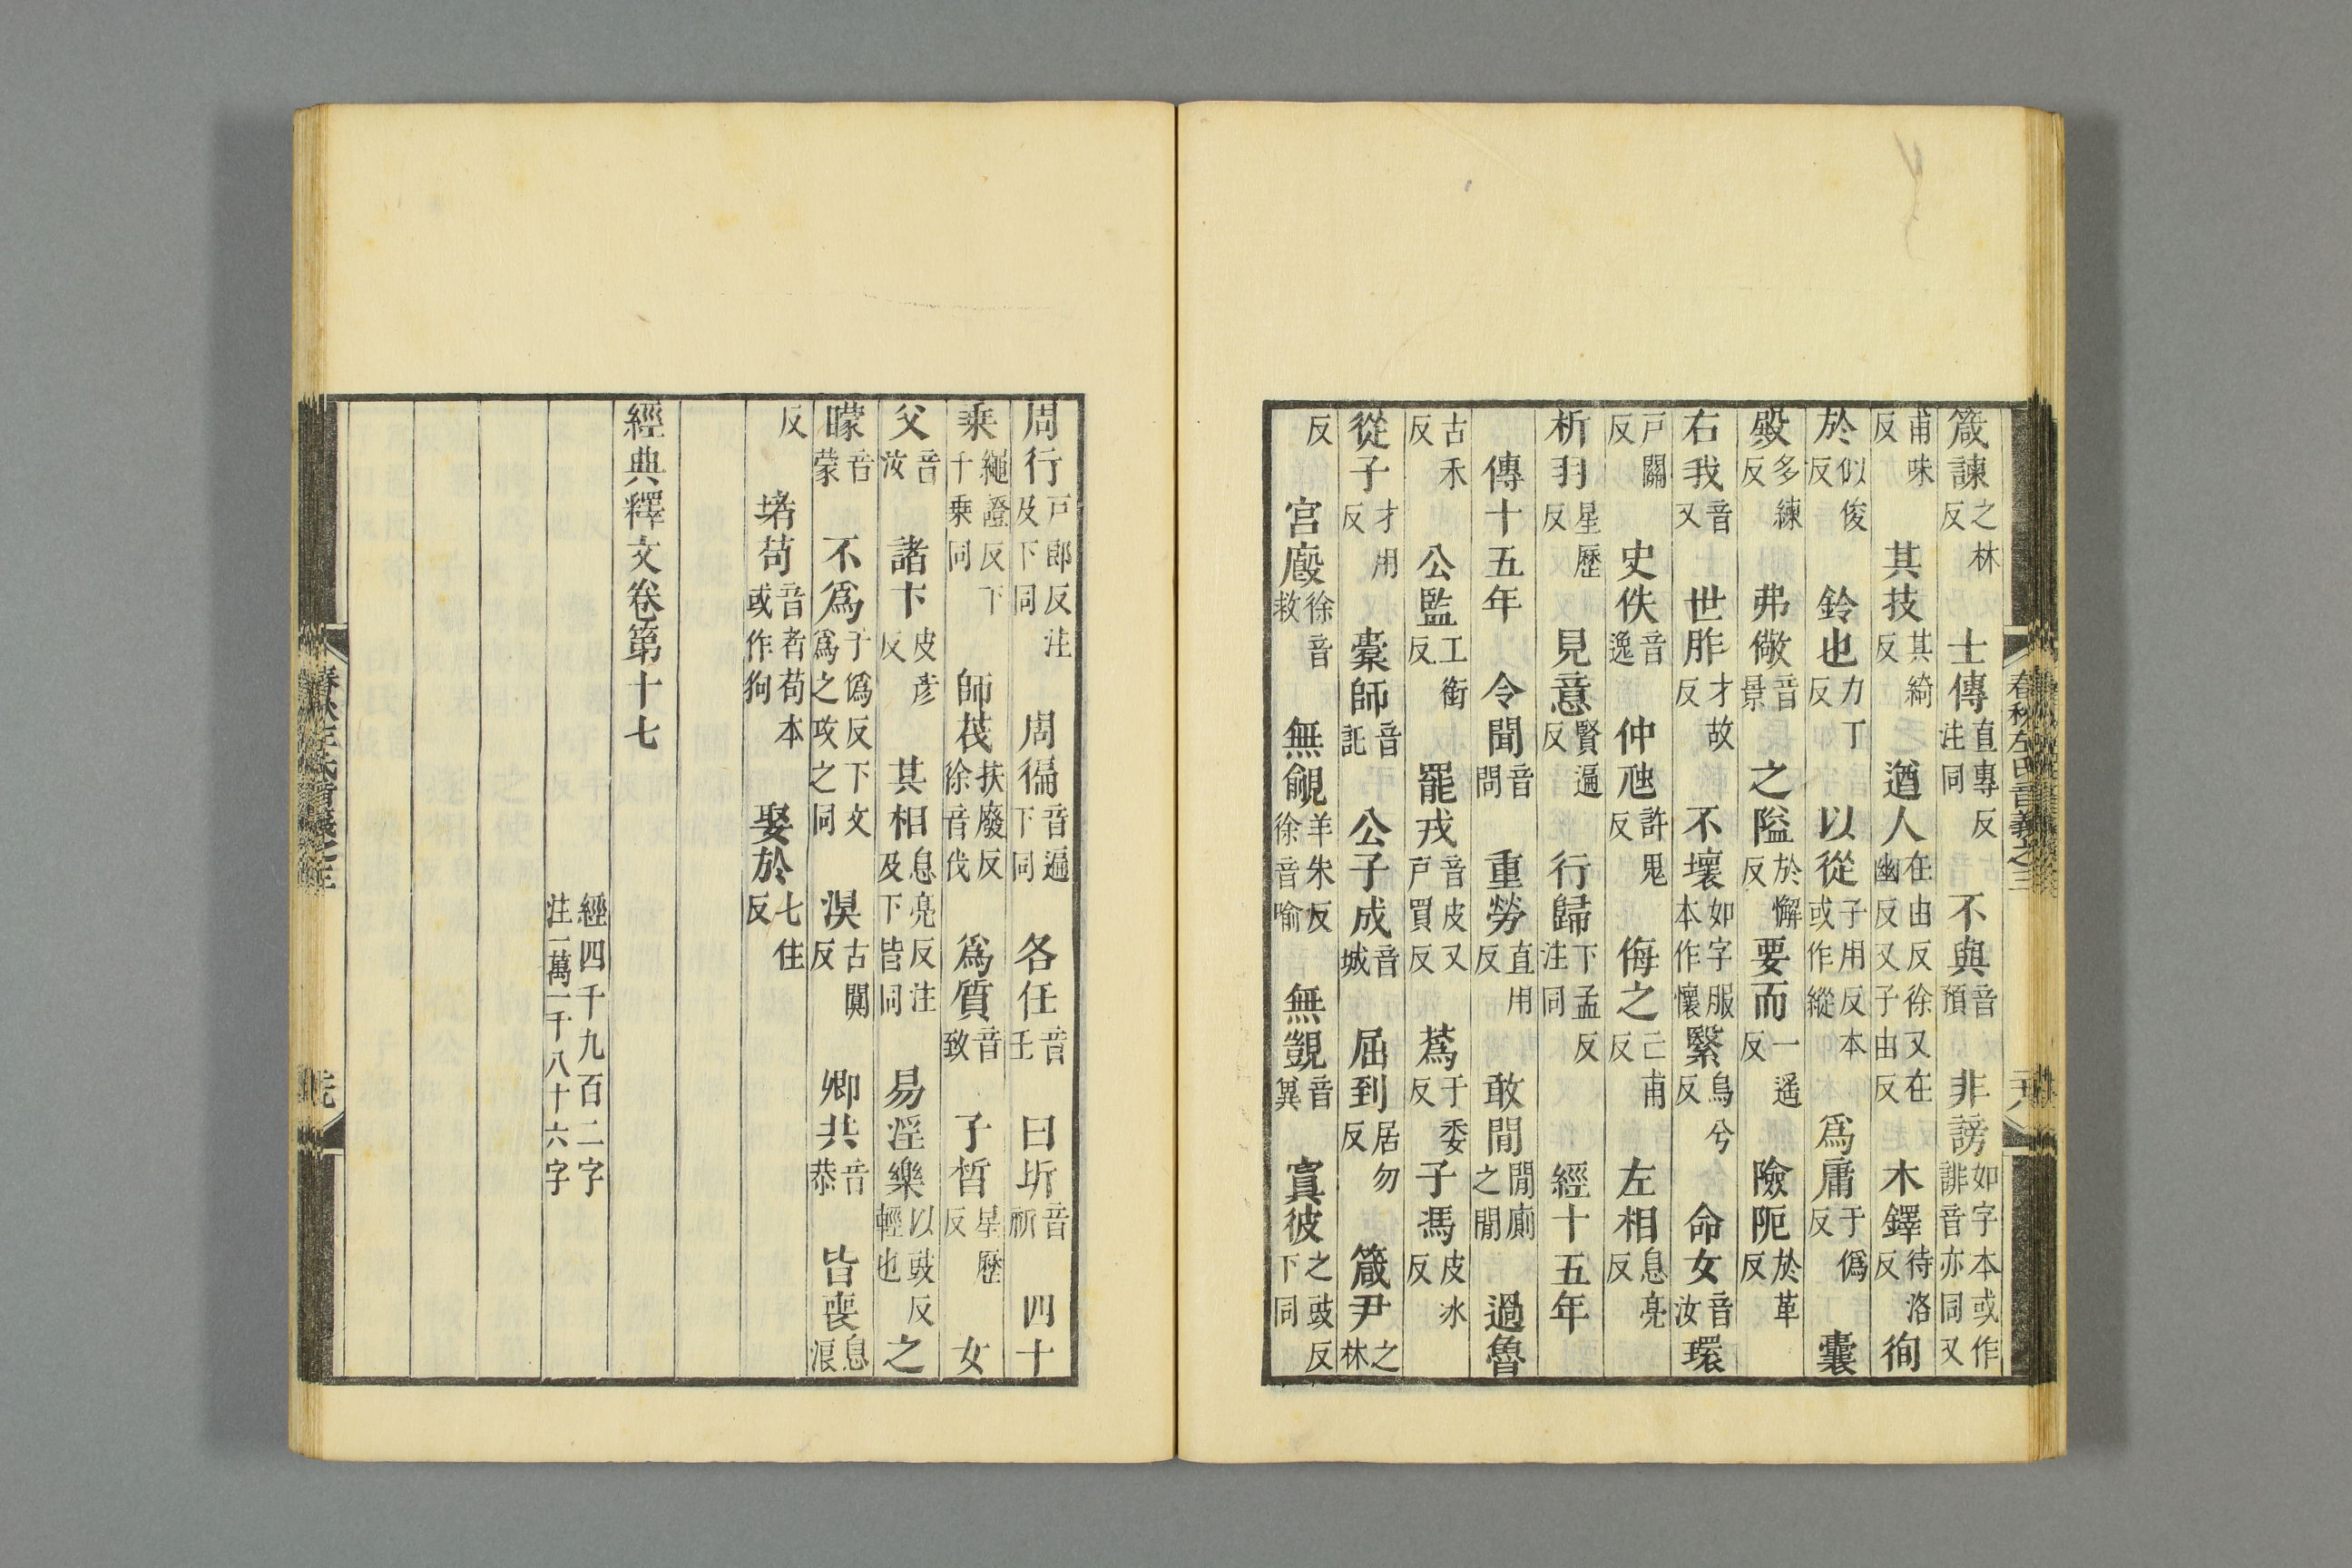 春秋左氏音義之三
箴諫之林反　士傳直專反注同　不與音預　非謗如字本或作誹音亦同又
甫味反　其技其綺反　遒人在由反徐又在幽反又子由反　木鐸待洛反　徇
於似俊反　鈴也力丁反　以從子用反本或作縱　爲庸于僞反　囊
殿多練反　弗儆音景　之隘於懈反　要而一遥反　險阨於革反
右我音又　世胙才故反　不壞如字服本作懷　繄烏兮反　命女音汝　環
戶關反　史佚音逸　仲虺許鬼反　侮之亡甫反　左相息亮反
析羽星歷反　見意賢遍反　行歸下孟反注同　經十五年
傳十五年　令聞音問　重勞直用反　敢閒閒廁之閒　過魯
古禾反　公監工銜反　罷戎音皮又戸買反　蒍于委反　子馮皮冰反
從子才用反　橐師音託　公子成音城　屈到居勿反　箴尹之林
反　宮廄徐音救　無覦羊朱反徐音喻　無覬音冀　寘彼之豉反下同
周行戸郎反注及下同　周徧音遍下同　各任音壬　曰圻音祈　四十
乗繩證反下千乗同　師茷扶廢反徐音伐　爲質音致　子晳星歷反　女
父音汝　諸卞皮彦反　其相息亮反注及下皆同　易淫樂以豉反輕也　之
矇音蒙　不爲子僞反下文爲之攻之同　溴古闃反　卿共音恭　皆喪息浪
反　堵苟音者苟本或作狗　娶於七住反
經典釋文卷第十七
經四千九百二字
注一萬一千八十六字